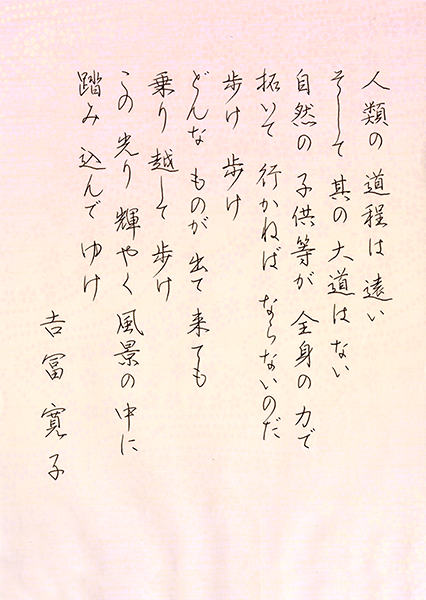 人類の道程は遠い
そして其の大道はない
自然の子供等が全身の力で
拓いて行かねばならないのだ
歩け歩け
どんなものが出て来ても
乗り越して歩け
この光り輝やく風景の中に
踏み込んでゆけ
吉冨寛子